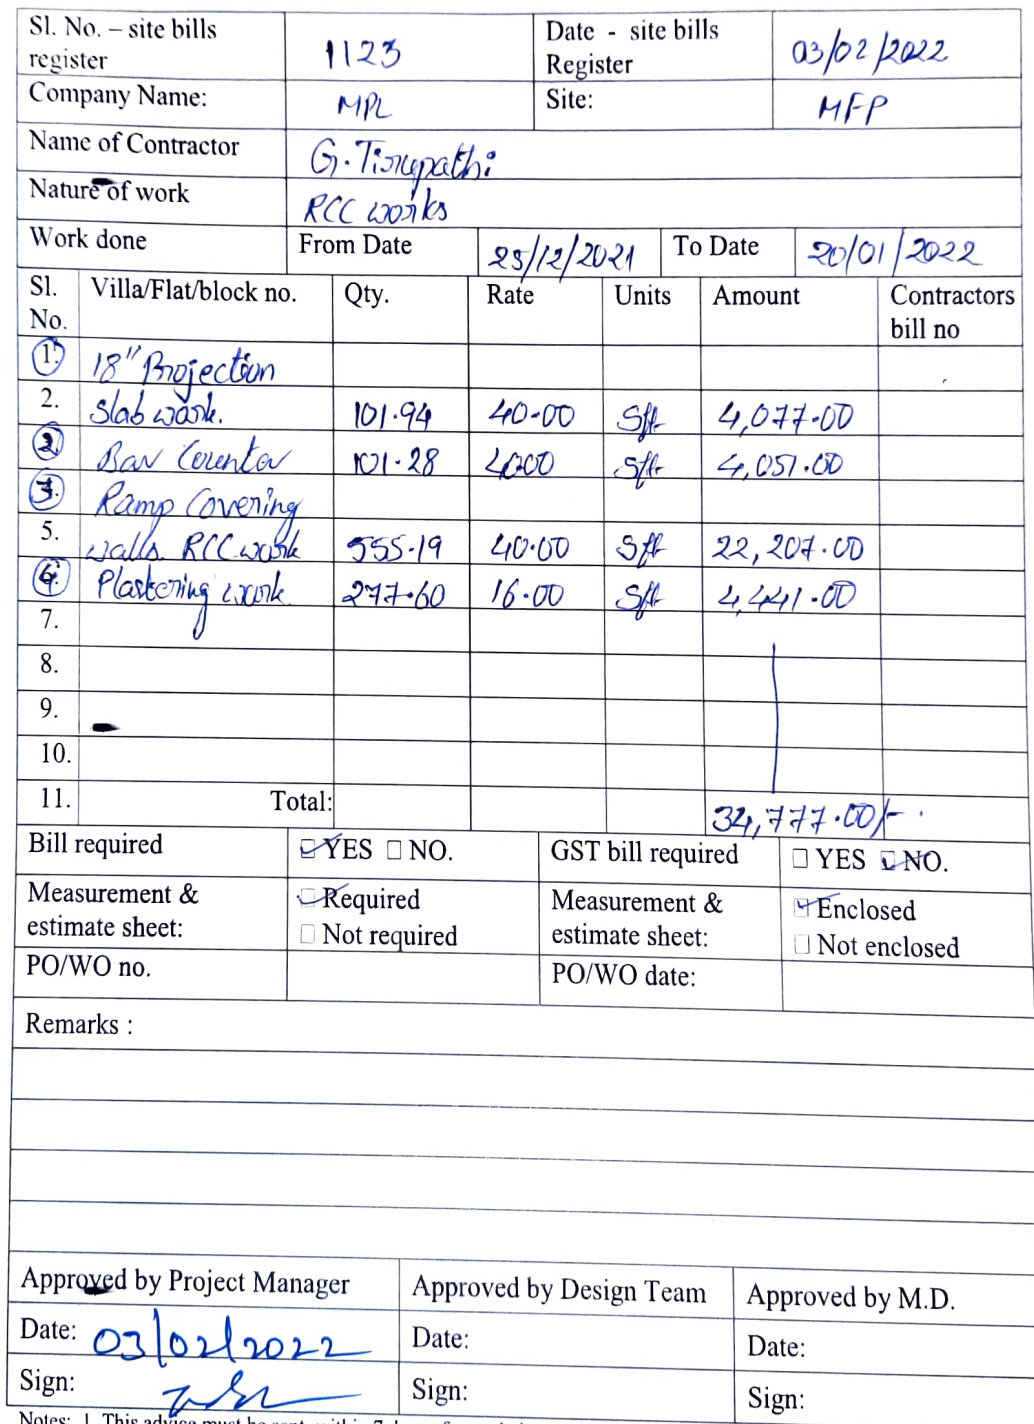 Sl. No. – site bills register 1123 Date - site bills Register 03/02/2022
Company Name: MPL Site: MFP
Name of Contractor G. Tirupathi
Nature of work RCC works
Work done From Date 25/12/2021 To Date 20/01/2022
Sl. No. Villa/Flat/block no. Qty. Rate Units Amount Contractors bill no
1. 18" Projection
2. Slab work. 101.94 40-00 Sft 4,077.00
2. Bar Counter 101.28 4000 Sft 4,051.00
3. Ramp Covering
5. walls RCC work 555.19 40.00 Sft 22,207.00
4. Plastering work 277.60 16.00 Sft 4,441.00
7.
8.
9.
10.
11. Total: 34,777.00/-
Bill required YES NO. GST bill required YES NO.
Measurement & estimate sheet: Required Not required Measurement & estimate sheet: Enclosed Not enclosed
PO/WO no. PO/WO date:
Remarks :
Approved by Project Manager Approved by Design Team Approved by M.D.
Date: 03/02/2022 Date: Date:
Sign: Sign: Sign:
Notes: 1. This advice must be sent within 7 days